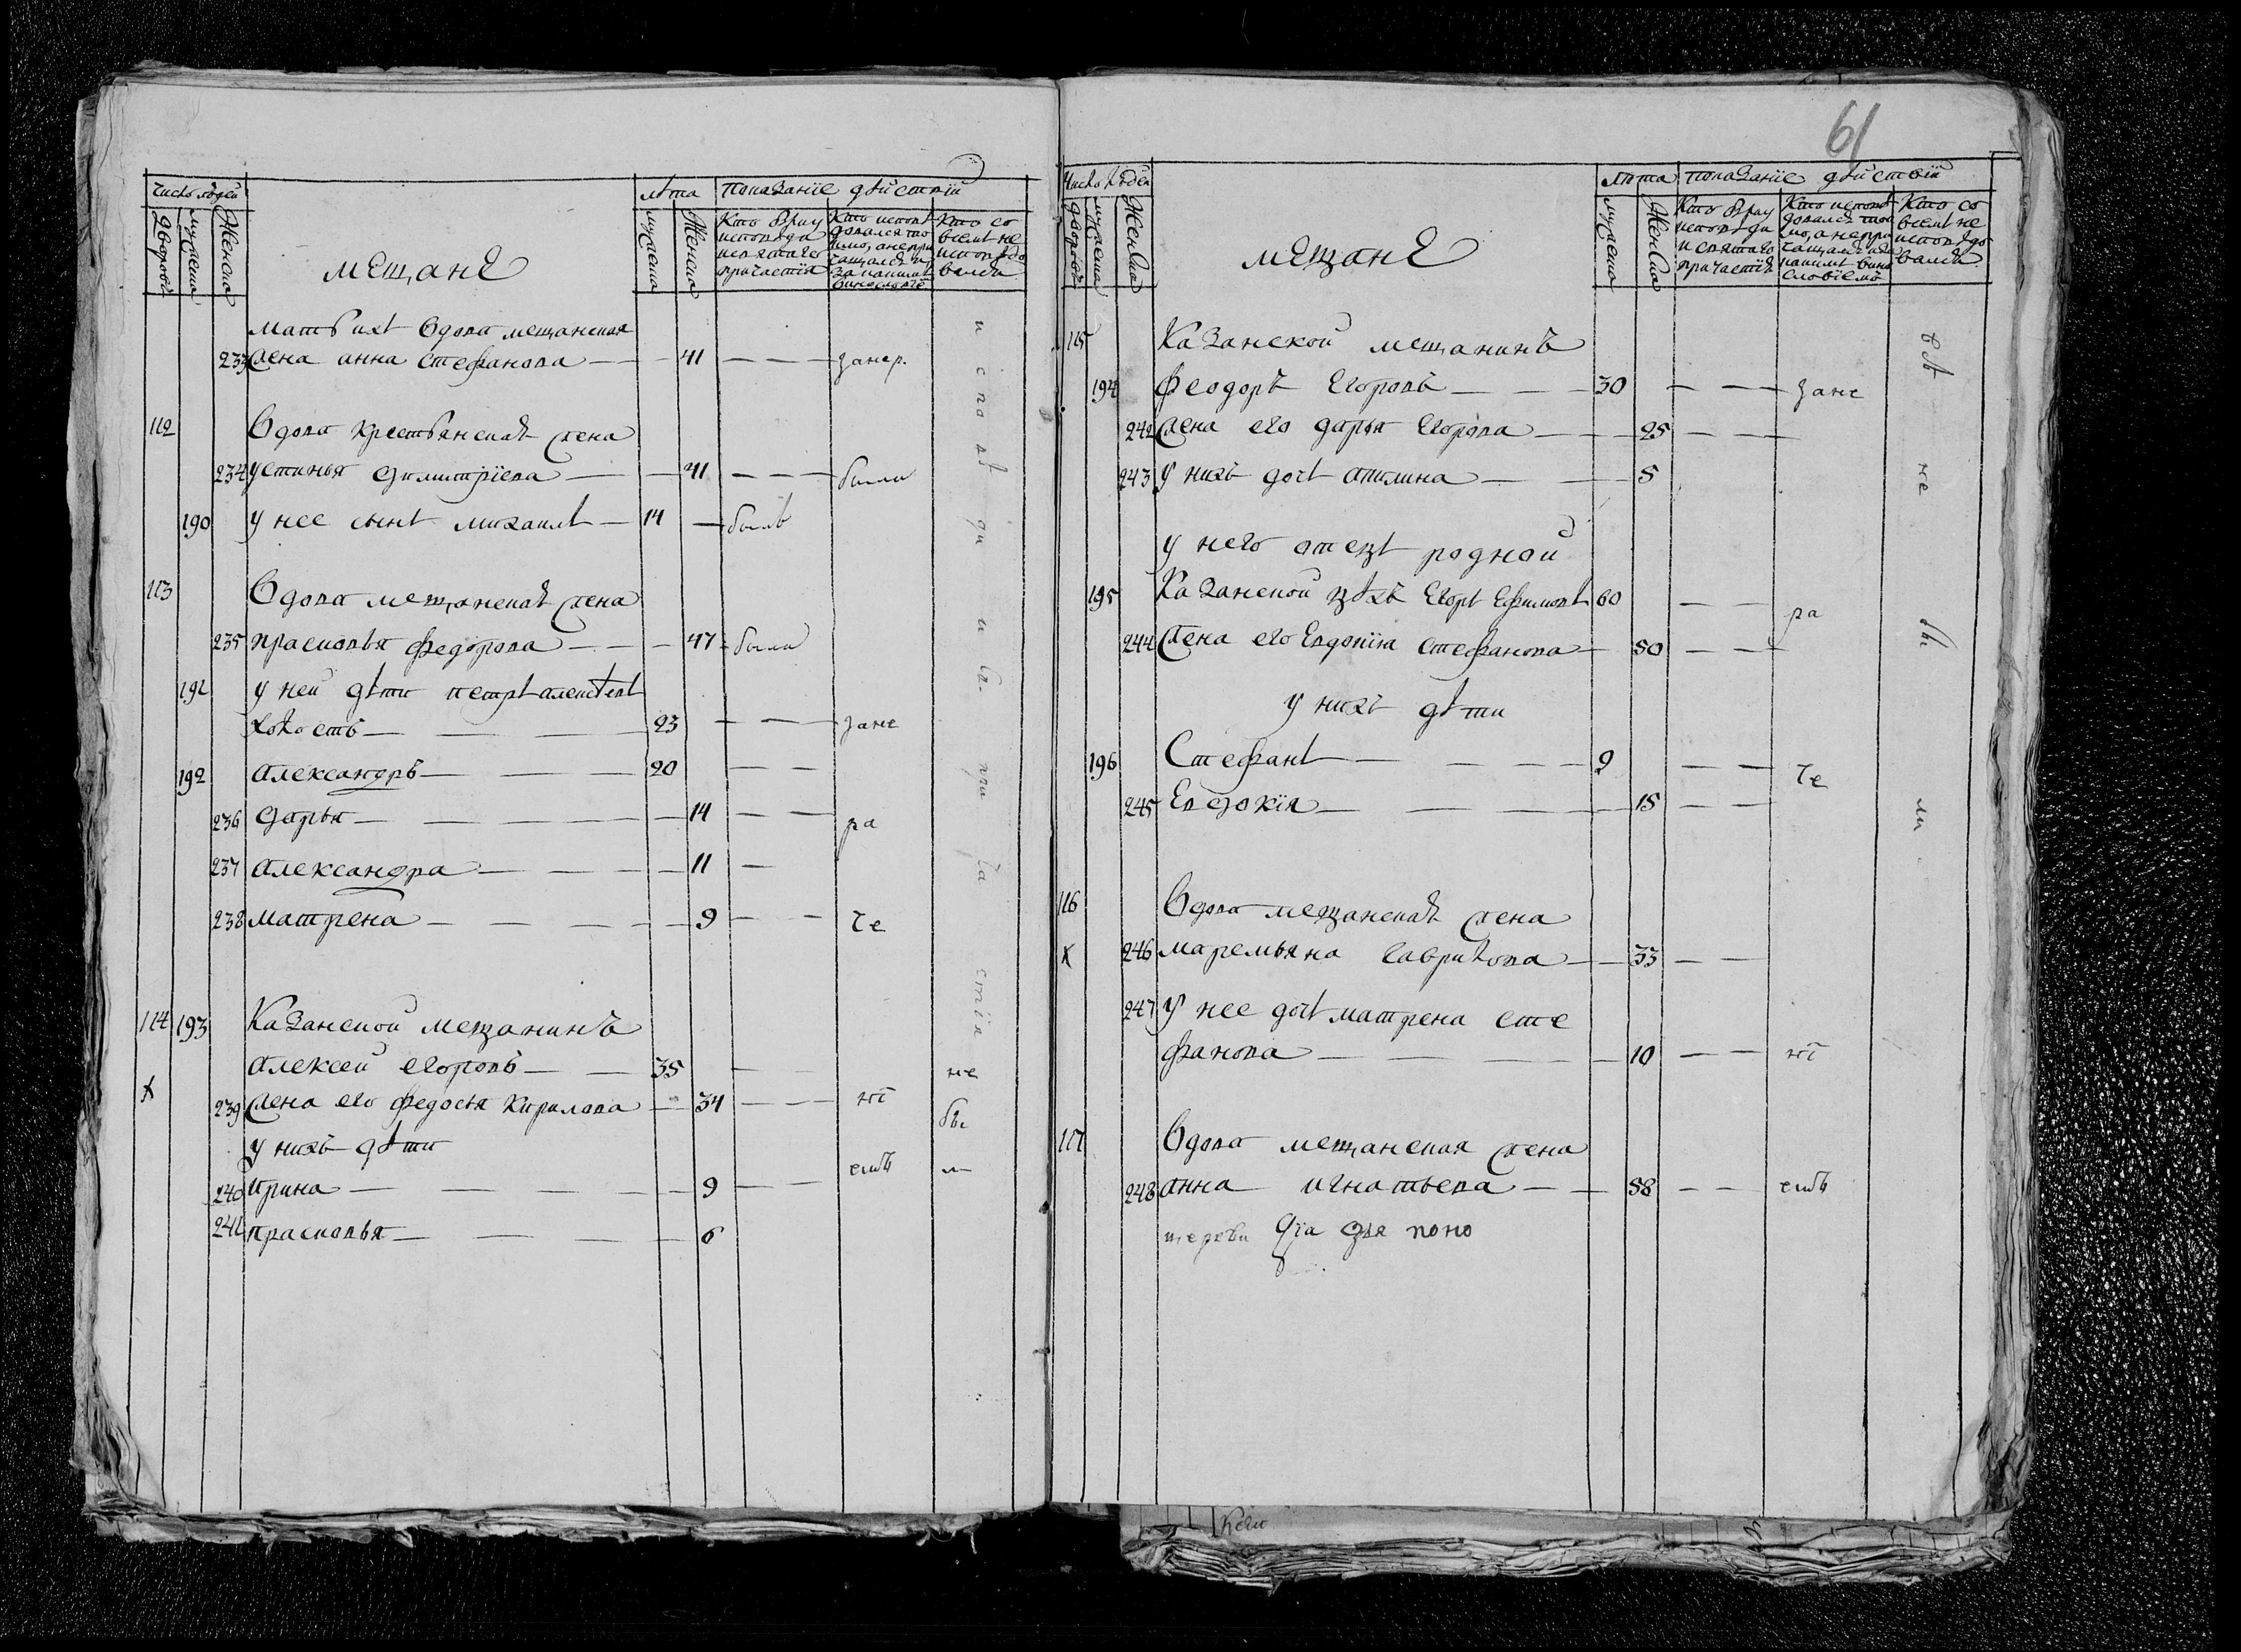 Число людей
Дворовъ
мужеска
Женска
мещане
лѣта
мужеска
Женска
показанїе дѣйствїй
Кто былъ у исповѣди и святаго причастїя
Кто исповѣдовался токмо, а не причащался и за какимъ винословїе
Кто со всемъ не исповѣдовался
вдова мещанская
233 жена анна стефанова — 41 — занер.
112 вдова крестьянская жена
234 устинья димитрїева — 41 — были
190 у нее сынъ михаилъ — 14 — былъ
113 вдова мещанская жена
235 прасковья федорова — 47 были
191 у ней дѣти петръ алексѣевъ
холостъ — 23 — зане
192 александръ — 20 —
236 дарья — 14 — ра
237 александра — 11 —
238 матрена — 9 — че
114 193 Казанской мещанинъ
алексей егоровъ — 35 — не
239 жена его федосья кирилова — 34 — нї бы
у нихъ дѣти
240 ирина — 9 — емъ
241 прасковья — 6
исповѣди и св. причастїя
61
Число людей
дворовъ
мужеска
Женска
мещане
лѣта
мужеска
Женска
показанїе дѣйствїй
Кто былъ у исповѣди и святаго причастїя
Кто исповѣдовался токмо, а не причащался и за какимъ винословїемъ
Кто со всемъ не исповѣдовался
115 Казанской мещанинъ
194 феодоръ егоровъ — 30 — зане
242 жена его дарья егорова — 25 —
243 у нихъ дочь акилина — 5
у него отецъ родной
195 Казанской егоръ ефимовъ 60 — ра
244 жена его евдокїя стефанова — 50 —
у нихъ дѣти
196 Стефанъ — 9 — че
245 Евдокїя — 15 —
116 вдова мещанская жена
х 246 маремьяна гаврилова — 33 —
247 у нее дочь матрена сте
фанова — 10 — нї
117 вдова мещанская жена
248 анна игнатьева — 58 — емъ
не бы ли